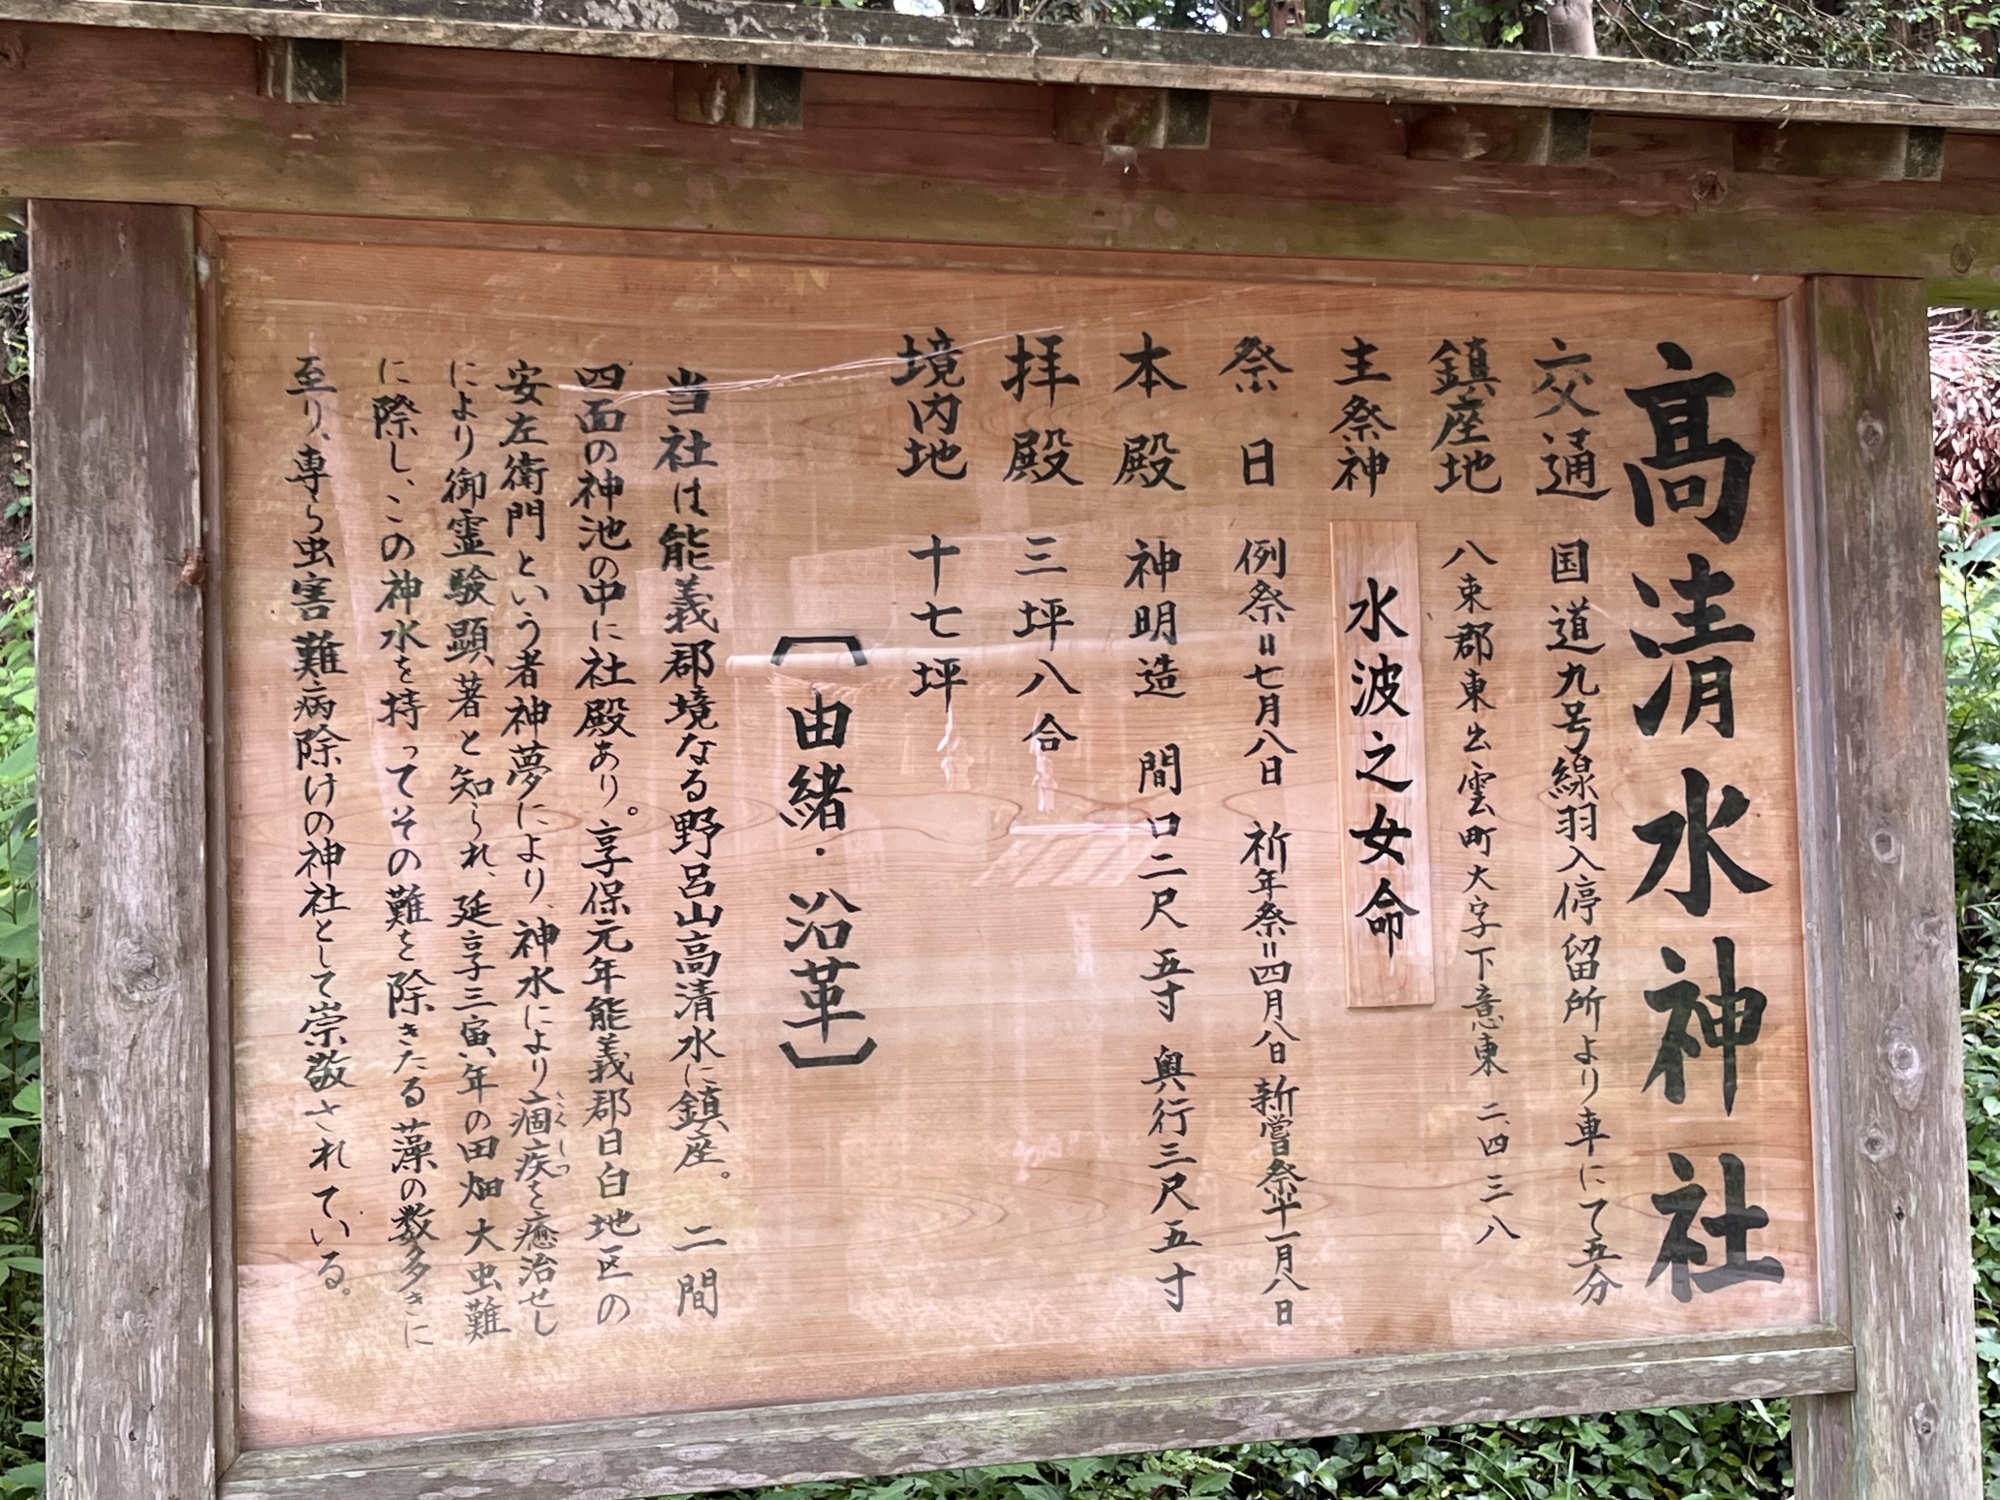 高清水神社
交通　国道九号線羽入停留所より車にて五分
鎮座地　八束郡東出雲町大字下意東二、四三八
主祭神　水波之女命
祭日　例祭＝七月八日　祈年祭＝四月八日　新嘗祭＝十一月八日
本殿　神明造　間口二尺五寸　奥行三尺五寸
拝殿　三坪八合
境内地　十七坪
〔由緒・沿革〕
当社は能義郡境なる野呂山高清水に鎮座。二間
四面の神池の中に社殿あり。享保元年能義郡日白地区の
安左衛門という者神夢により、神水により痼疾を癒治せし
こくしつ
により御霊験顕著と知られ、延享三寅年の田畑大虫難
に際し、この神水を持ってその難を除きたる藻の数多きに
至り、専ら虫害難病除けの神社として崇敬されている。